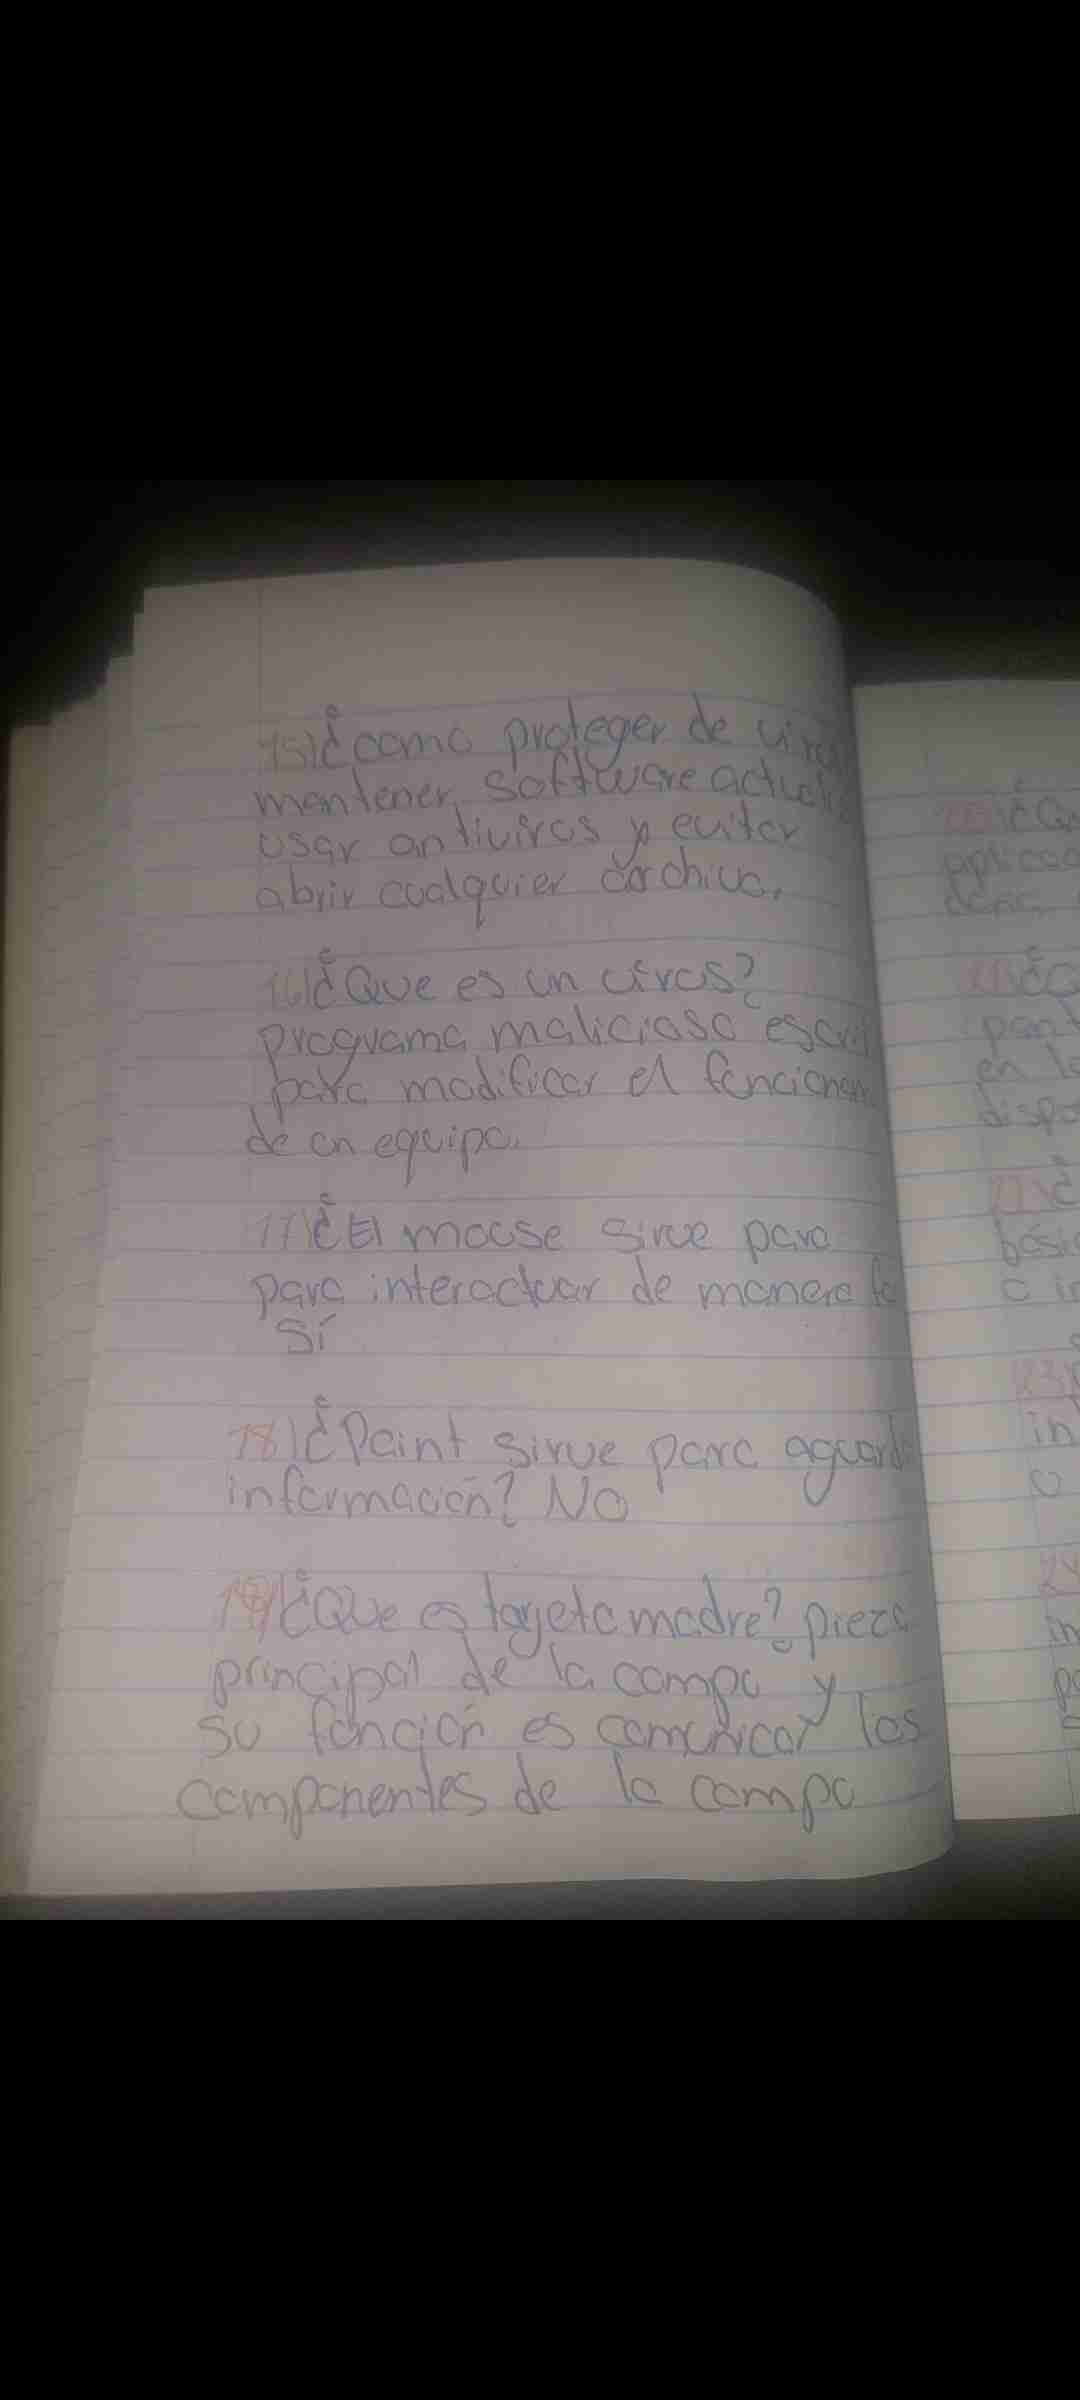 15)¿como proteger de virus
mantener software actuali
usar antivirus y evitar
abrir cualquier archivo.
16)¿Que es un virus?
programa malicioso escri
para modificar el funcionam
de un equipo.
17)¿El mouse sirve para
para interactuar de manera fa
Sí
18)¿Paint sirve para aguard
información? No
19)¿Que es tarjeta madre? pieza
principal de la compu y
su función es comunicar los
componentes de la compu
¿Qu
aplicac
¿Q
pant
en la
dispo
22)¿
básic
o in
23)
in
o
24
in
pa